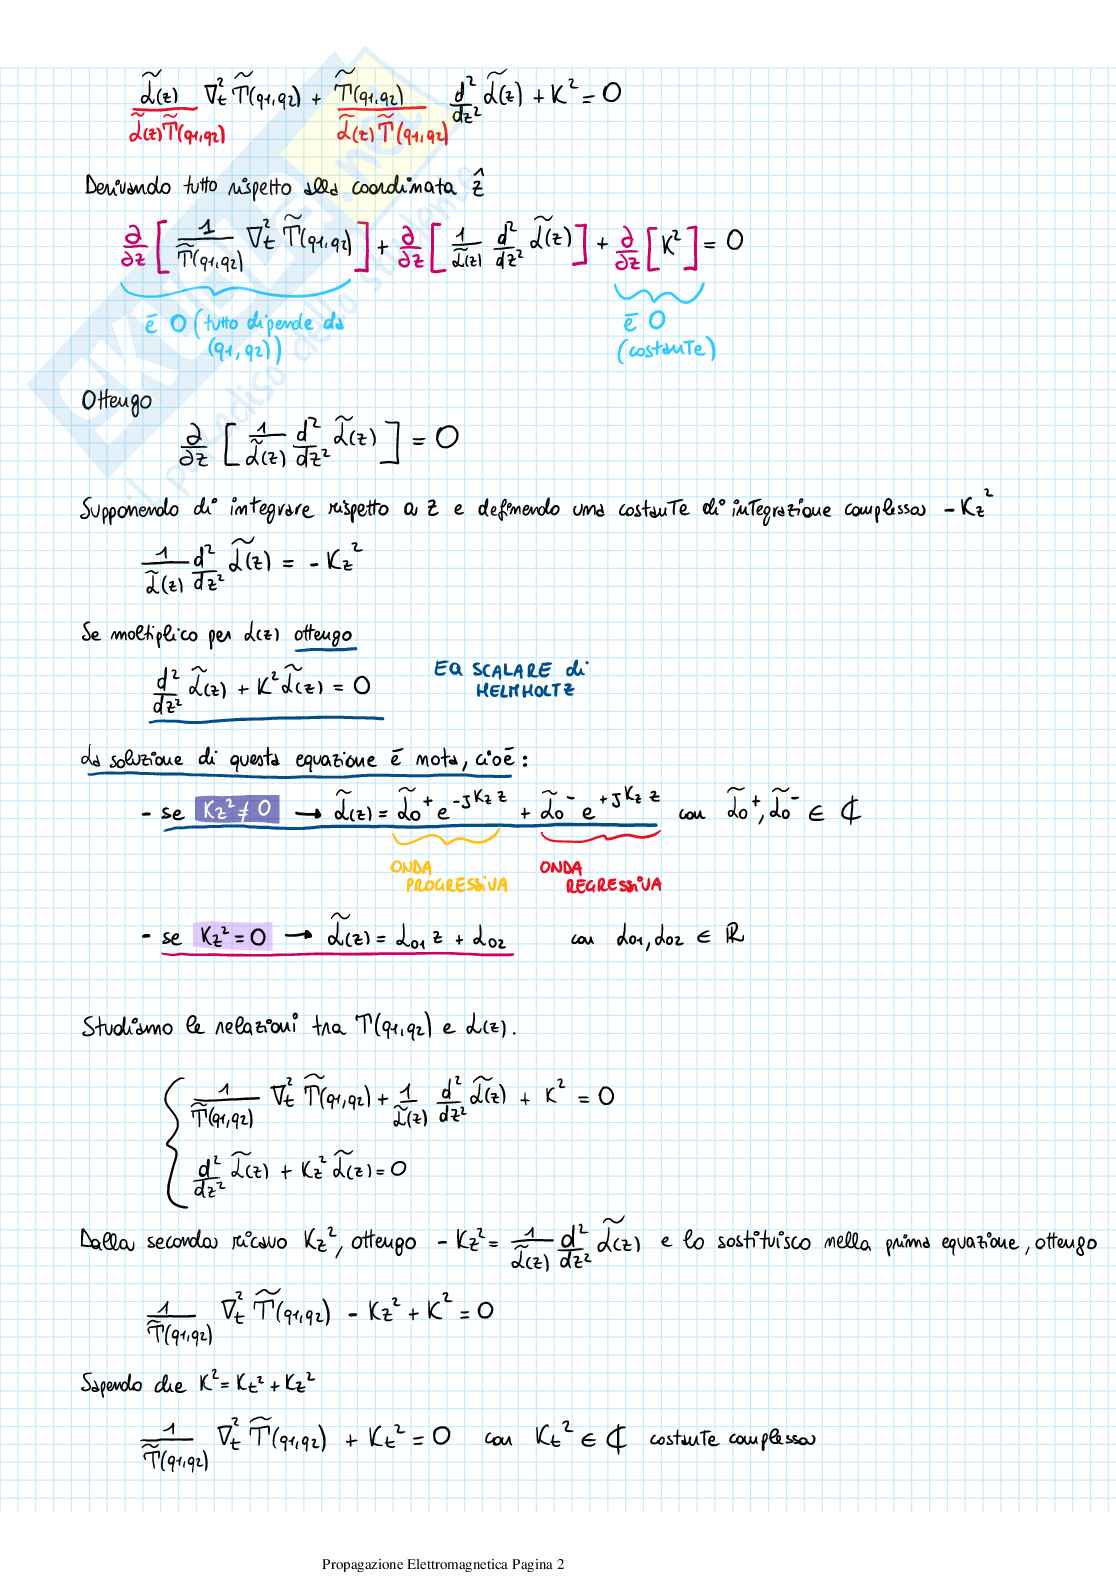 L̃(z)/L̃(z)T̃(q1,q2) ∇t² T̃(q1,q2) + T̃(q1,q2)/L̃(z)T̃(q1,q2) d²/dz² L̃(z) + K² = 0
Derivando tutto rispetto alla coordinata ẑ
∂/∂z [ 1/T̃(q1,q2) ∇t² T̃(q1,q2) ] + ∂/∂z [ 1/L(z) d²/dz² L̃(z) ] + ∂/∂z [ K² ] = 0
ē 0 (tutto dipende da (q1,q2))
ē 0 (costante)
Ottengo
∂/∂z [ 1/L̃(z) d²/dz² L̃(z) ] = 0
Supponendo di integrare rispetto a z e definendo una costante di integrazione complessa - Kz²
1/L̃(z) d²/dz² L̃(z) = - Kz²
Se moltiplico per L(z) ottengo
d²/dz² L̃(z) + K² L̃(z) = 0
EQ SCALARE di
HELMHOLTZ
La soluzione di questa equazione ē nota, cioē:
- se Kz² ≠ 0 → L̃(z) = L̃0⁺ e^-jKz z + L̃0⁻ e^+jKz z con L̃0⁺, L̃0⁻ ∈ ℂ
ONDA PROGRESSIVA
ONDA REGRESSIVA
- se Kz² = 0 → L̃(z) = L01 z + L02 con L01, L02 ∈ ℝ
Studiamo le relazioni tra T(q1,q2) e L(z).
1/T̃(q1,q2) ∇t² T̃(q1,q2) + 1/L̃(z) d²/dz² L̃(z) + K² = 0
d²/dz² L̃(z) + Kz² L̃(z) = 0
Dalla seconda ricavo Kz², ottengo - Kz² = 1/L̃(z) d²/dz² L̃(z) e lo sostituisco nella prima equazione, ottengo
1/T̃(q1,q2) ∇t² T̃(q1,q2) - Kz² + K² = 0
Sapendo che K² = Kt² + Kz²
1/T̃(q1,q2) ∇t² T̃(q1,q2) + Kt² = 0 con Kt² ∈ ℂ costante complessa
Propagazione Elettromagnetica Pagina 2